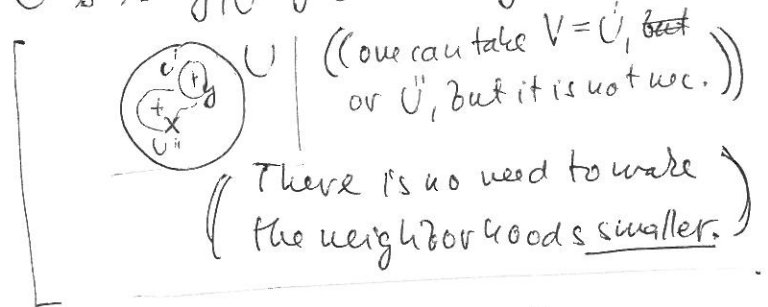 U' U
y
x
U''
((one can take V = U', but
or U'', but it is not nec.))
(There is no need to make
the neighborhoods smaller.)